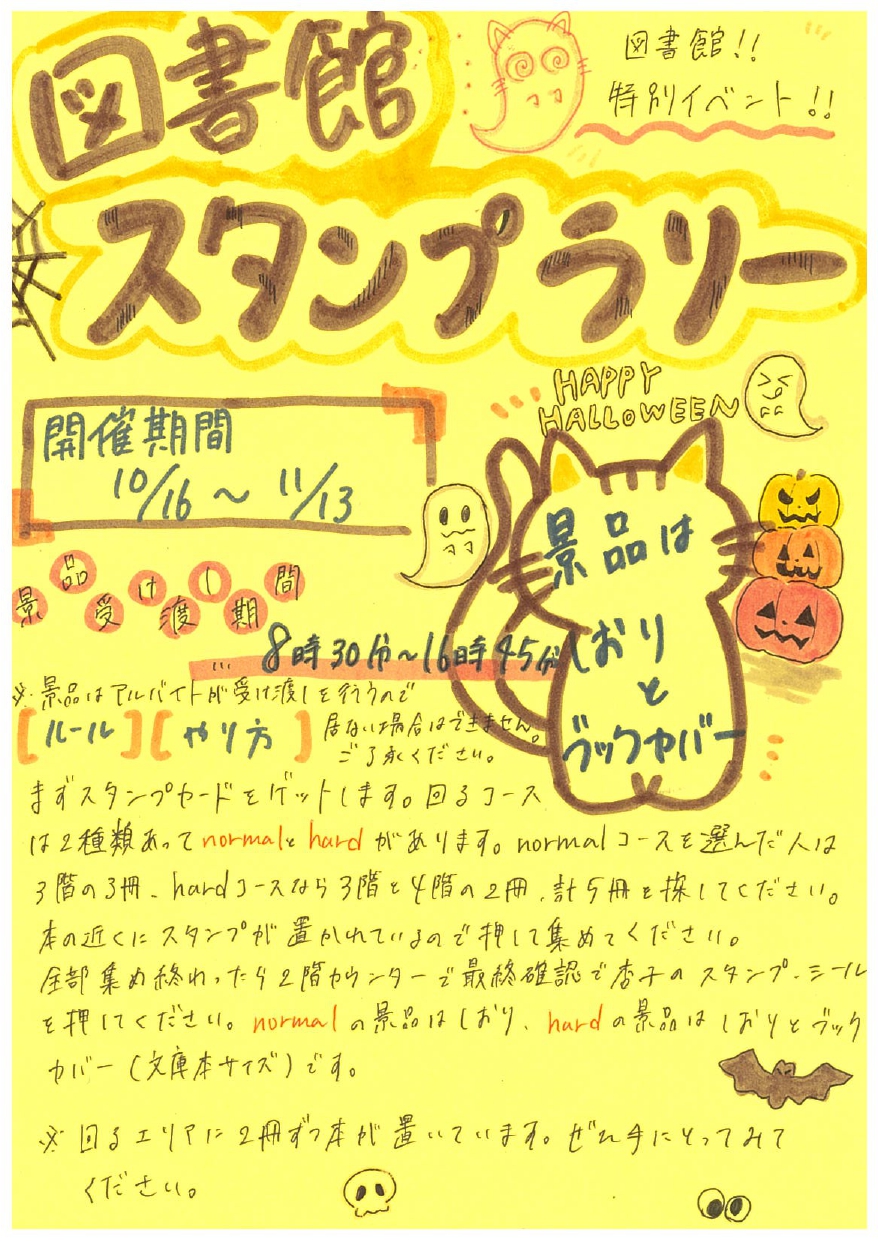 図書館
スタンプラリー
図書館!!
特別イベント!!
HAPPY
HALLOWEEN
開催期間
10/16～11/13
景品はしおりとブックカバー
景品受け渡し期間
…8時30分～16時45分
※景品はアルバイトが受け渡しを行うので
居ない場合はできません。
ご了承ください。
[ルール][やり方]
まずスタンプカードをゲットします。回るコース
は2種類あってnormalとhardがあります。normalコースを選んだ人は
3階の3冊、hardコースなら3階と4階の2冊、計5冊を探してください。
本の近くにスタンプが置かれているので押して集めてください。
全部集め終わったら2階カウンターで最終確認で杏子のスタンプ・シール
を押してください。normalの景品はしおり、hardの景品はしおりとブック
カバー(文庫本サイズ)です。
※回るエリアに2冊ずつ本が置いています。ぜひ手にとってみて
ください。